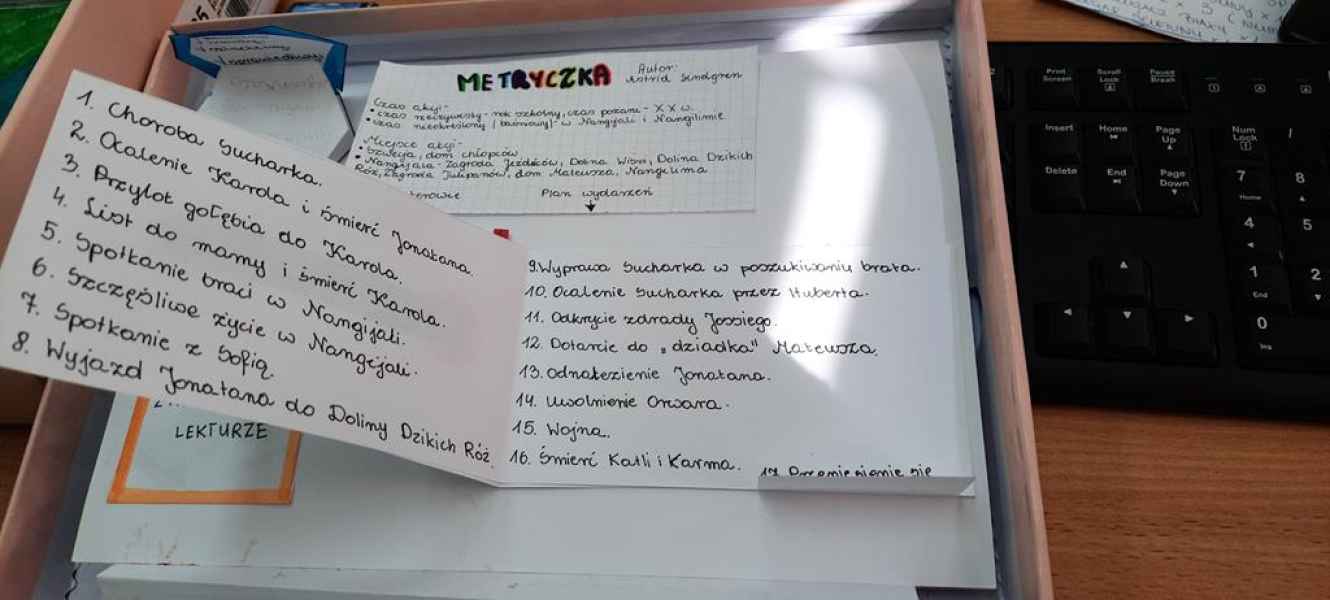 METRYCZKA
Autor:
Astrid Lindgren
Czas akcji-
• czas rzeczywisty - rok szkolny, czas pozami - XX w.
• czas nieokreślony (baśniowy) - w Nangijali i Nangilimie
Miejsce akcji-
• Szwecja, dom chłopców
• Nangijala - Zagroda Jeźdźców, Dolina Wiśni, Dolina Dzikich
Róż, Zagroda Tulipanów, dom Mateusza, Nangilima
Plan wydarzeń
1. Choroba Sucharka.
2. Ocalenie Karola i śmierć Jonatana.
3. Przylot gołębia do Karola.
4. List do mamy i śmierć Karola.
5. Spotkanie braci w Nangijali.
6. Szczęśliwe życie w Nangijali.
7. Spotkanie z Sofią.
8. Wyjazd Jonatana do Doliny Dzikich Róż.
9. Wyprawa Sucharka w poszukiwaniu brata.
10. Ocalenie Sucharka przez Huberta.
11. Odkrycie zdrady Jossiego.
12. Dotarcie do „dziadka" Mateusza.
13. Odnalezienie Jonatana.
14. Uwolnienie Orwara.
15. Wojna.
16. Śmierć Katli i Karma.
17. Przeniesienie się
LEKTURZE
Print Screen
Scroll Lock
Pause Break
Insert
Home
Page Up
Num Lock
/
Delete
End
Page Down
7
Home
8
4
5
1
End
2
0
Ins